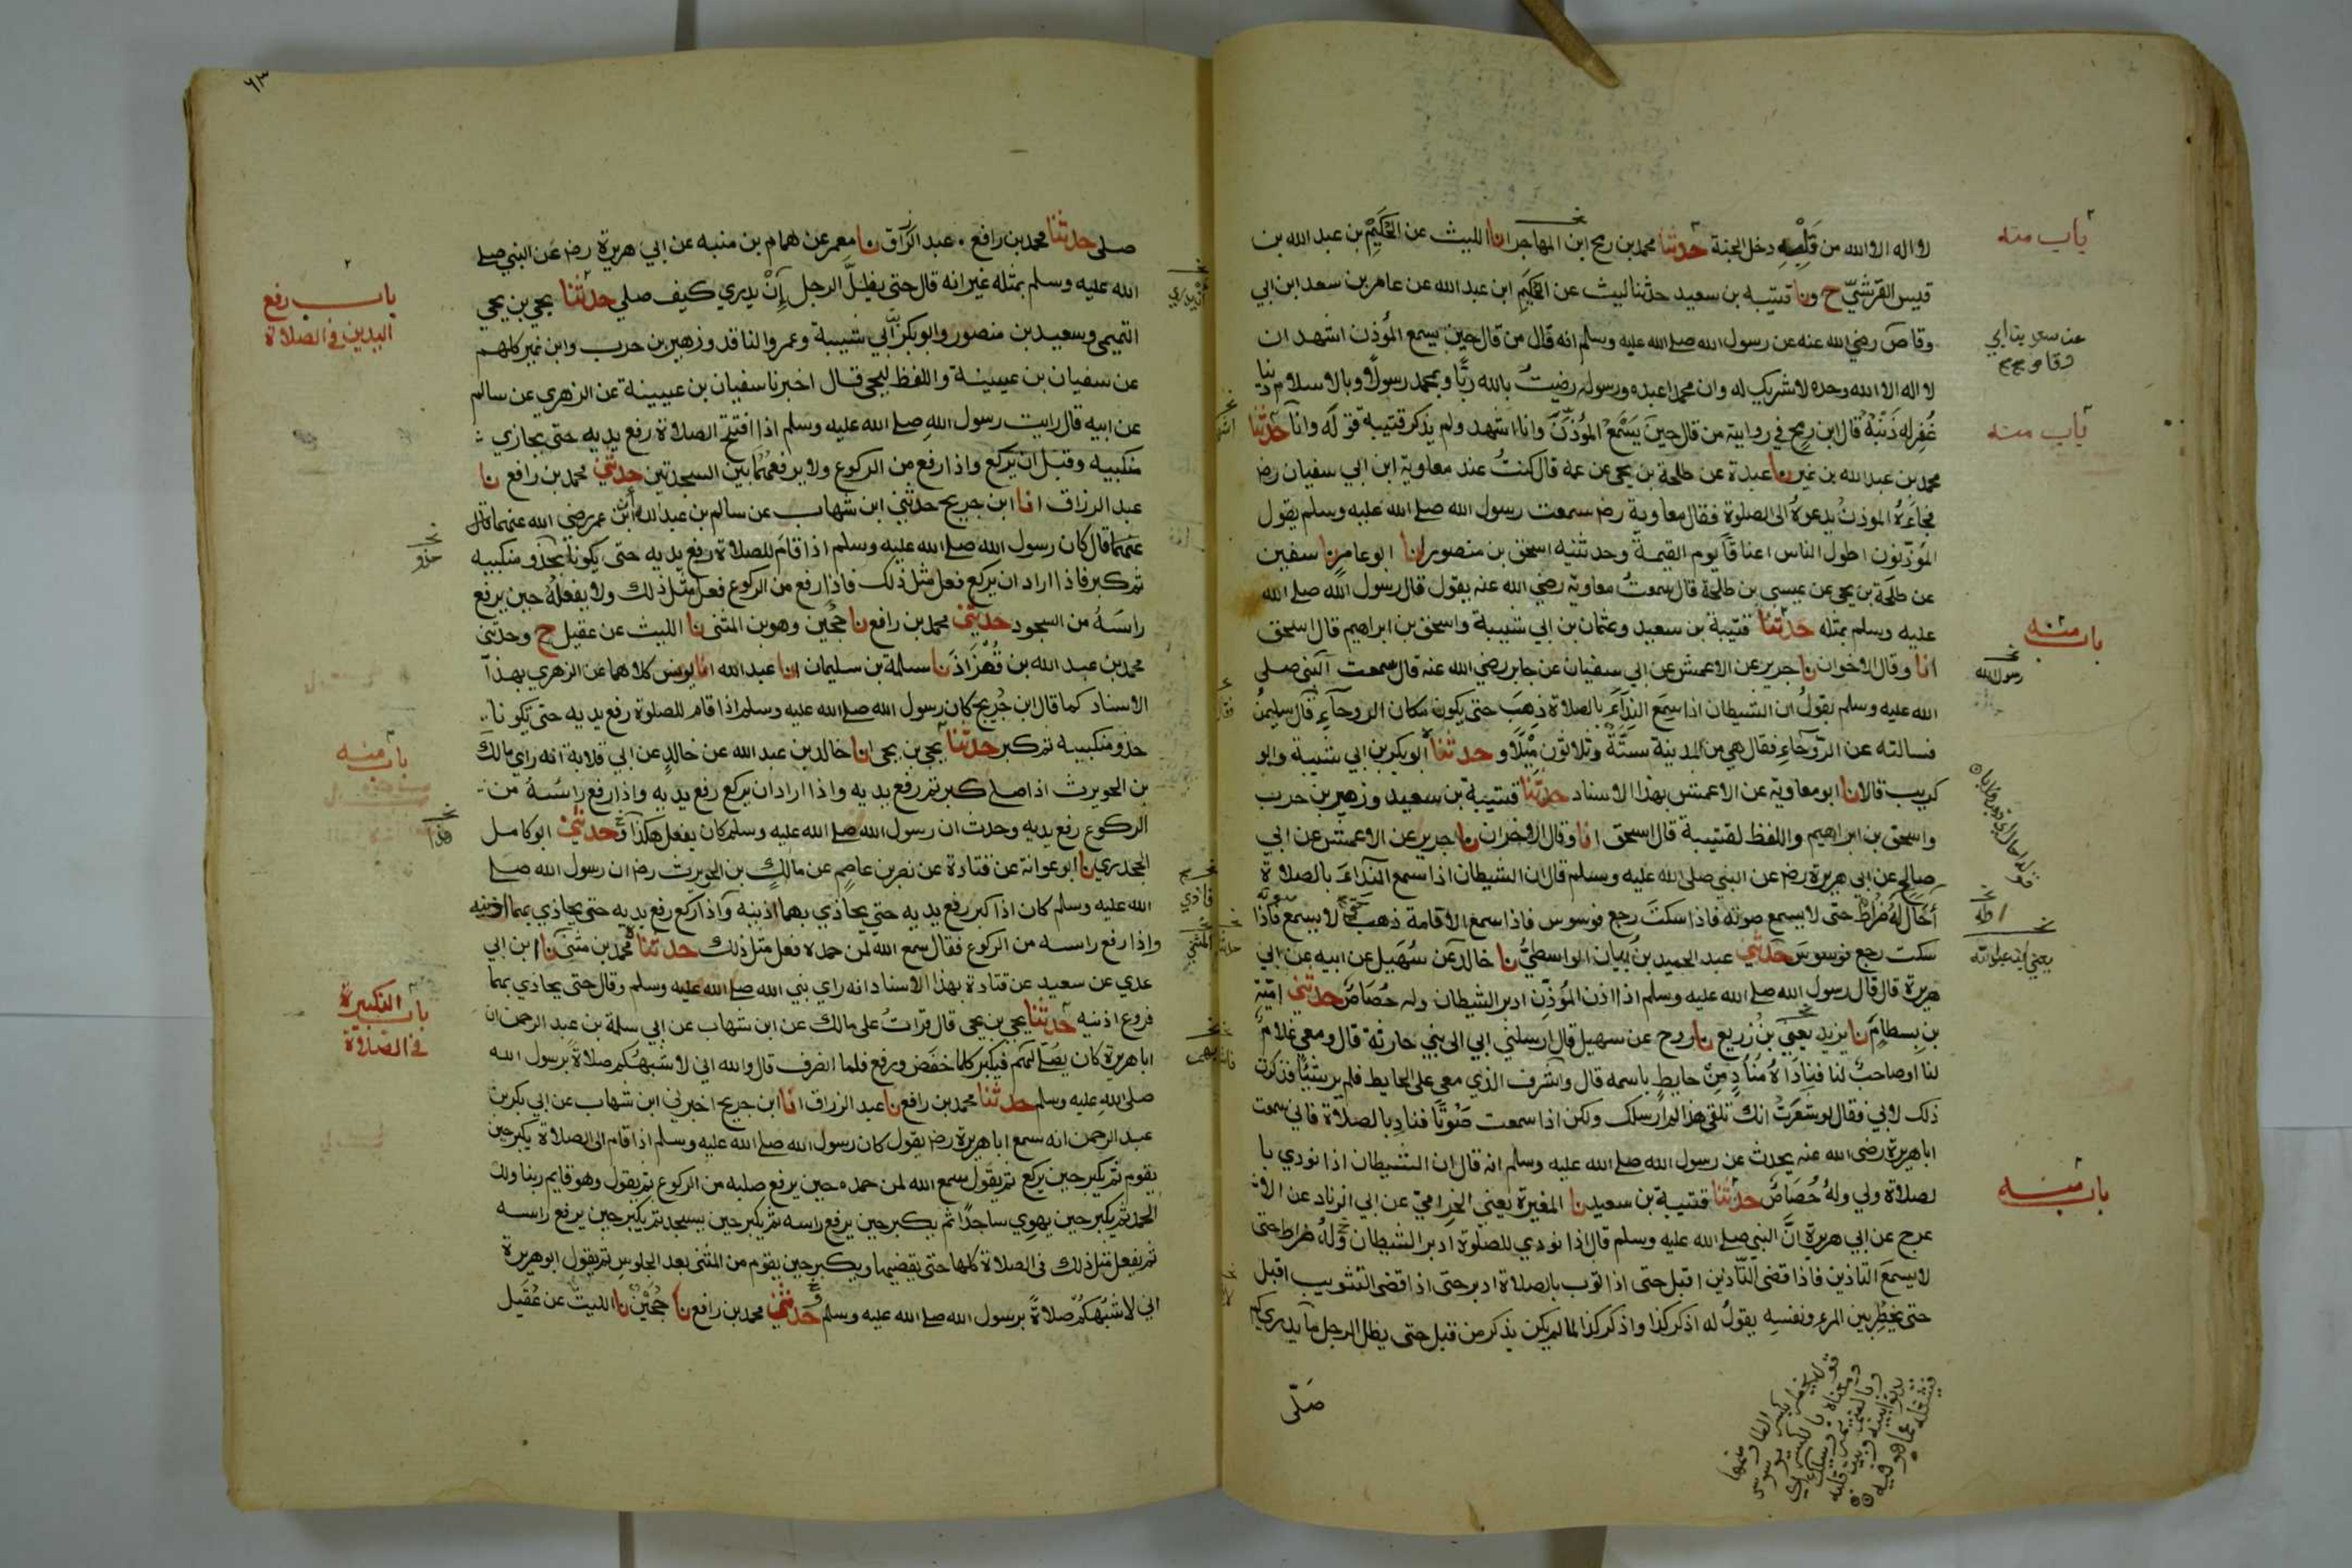 لا اله الا الله من قلبه دخل الجنة حدثنا محمد بن رمح ابن المهاجر انا الليث عن الحكيم بن عبد الله بن
قيس القرشي ح ونا قتيبه بن سعيد حدثنا ليث عن الحكيم ابن عبد الله عن عامر بن سعد ابن ابي
وقاص رضي الله عنه عن رسول الله صلى الله عليه وسلم انه قال من قال حين يسمع المؤذن اشهد ان
لا اله الا الله وحده لا شريك له وان محمدا عبده ورسوله رضيت بالله ربا وبمحمد رسولا وبالاسلام دينا
غفر له ذنبه قال ابن رمح في روايته من قال حين يسمع المؤذن وانا اشهد ولم يذكر قتيبة قوله وانا حدثنا
محمد بن عبد الله بن نمير نا عبدة عن طلحة بن يحيى عن عمه قال كنت عند معاوية ابن ابي سفيان رض
فجاءه الموذن يدعوه الى الصلوة فقال معاوية رض سمعت رسول الله صلى الله عليه وسلم يقول
المؤذنون اطول الناس اعناقا يوم القيمة وحدثنيه اسحق بن منصور انا ابو عامر نا سفين
عن طلحة بن يحيى عن عيسى بن طلحة قال سمعت معاوية رضي الله عنه يقول قال رسول الله صلى الله
عليه وسلم بمثله حدثنا قتيبة بن سعيد وعثمان بن ابي شيبة واسحق بن ابراهيم قال اسحق
انا وقال الاخران نا جرير عن الاعمش عن ابي سفيان عن جابر رضي الله عنه قال سمعت النبي صلى
الله عليه وسلم يقول ان الشيطان اذا سمع النداء بالصلاة ذهب حتى يكون مكان الروحاء قال سليمن
فسالته عن الروحاء فقال هي من المدينة ستة وثلاثون ميلا و حدثنا ابو بكر بن ابي شيبة وابو
كريب قالا نا ابو معاوية عن الاعمش بهذا الاسناد حدثنا قتيبة بن سعيد وزهير بن حرب
واسحق بن ابراهيم واللفظ لقتيبة قال اسحق انا وقال الاخران نا جرير عن الاعمش عن ابي
صالح عن ابي هريرة رض عن النبي صلى الله عليه وسلم قال ان الشيطان اذا سمع النداء بالصلاة
أحال له ضراط حتى لا يسمع صوته فاذا سكت رجع فوسوس فاذا سمع الاقامة ذهب حتى لا يسمع صوته فاذا
سكت رجع فوسوس حدثني عبد الحميد بن بيان الواسطي نا خالد عن سهيل عن ابيه عن ابي
هريرة قال قال رسول الله صلى الله عليه وسلم اذا اذن المؤذن ادبر الشيطان وله حصاص حدثني امية
بن بسطام نا يزيد يعني بن زريع نا روح عن سهيل قال ارسلني ابي الى بني حارثة قال ومعي غلام
لنا او صاحب لنا فناداه مناد من حايط باسمه قال واشرف الذي معي على الحايط فلم ير شيئا فذكرت
ذلك لابي فقال لو شعرت انك تلقى هذا لم ارسلك ولكن اذا سمعت صوتا فناد بالصلاة فاني سمعت
ابا هريرة رضى الله عنه يحدث عن رسول الله صلى الله عليه وسلم انه قال ان الشيطان اذا نودي با
لصلاة ولي وله حصاص حدثنا قتيبة بن سعيد نا المغيرة يعني الحزامي عن ابي الزناد عن الا
عرج عن ابي هريرة ان النبي صلى الله عليه وسلم قال اذا نودي للصلوة ادبر الشيطان وله ضراط حتى
لا يسمع التاذين فاذا قضى التاذين اقبل حتى اذا ثوب بالصلاة ادبر حتى اذا قضى التثويب اقبل
حتى يخطر بين المرء ونفسه يقول له اذكر كذا واذكر كذا لما لم يكن يذكر من قبل حتى يظل الرجل ما يدري كم
صلى
باب منه
عن سعد بن ابي
وقاص
باب منه
باب منه
رسول الله
باب منه
قوله يخطر بكسر الطا وضمها
ومعناه بالكسر يوسوس
٦٣
صلى حدثنا محمد بن رافع عبد الرزاق نا معمر عن همام بن منبه عن ابي هريرة رض عن النبي صلى
الله عليه وسلم بمثله غير انه قال حتى يظل الرجل إن يدري كيف صلي حدثنا يحيى بن يحيى
التميمي وسعيد بن منصور وابو بكر بن أبي شيبة وعمرو الناقد وزهير بن حرب وابن نمير كلهم
عن سفيان بن عيينة واللفظ ليحيى قال اخبرنا سفيان بن عيينة عن الزهري عن سالم
عن ابيه قال رايت رسول الله صلى الله عليه وسلم اذا افتتح الصلاة رفع يديه حتى يحازي
منكبيه وقبل ان يركع واذا رفع من الركوع ولا يرفعهما بين السجدتين حدثني محمد بن رافع نا
عبد الرزاق انا ابن جريج حدثني ابن شهاب عن سالم بن عبد الله أن ابن عمر رضي الله عنهما قال
عنهما قال كان رسول الله صلى الله عليه وسلم اذا قام للصلاة رفع يديه حتى يكونا بحذو منكبيه
ثم كبر فاذا اراد ان يركع فعل مثل ذلك فاذا رفع من الركوع فعل مثل ذلك ولا يفعله حين يرفع
راسه من السجود حدثني محمد بن رافع نا حجين وهو بن المثنى نا الليث عن عقيل ح وحدثني
محمد بن عبد الله بن قهزاذ نا سلمة بن سليمان انا عبد الله انا يونس كلاهما عن الزهري بهذا
الاسناد كما قال ابن جريج كان رسول الله صلى الله عليه وسلم اذا قام للصلوة رفع يديه حتى تكونا
حذو منكبيه ثم كبر حدثنا يحيى بن يحيى انا خالد بن عبد الله عن خالد عن ابي قلابة انه راي مالك
بن الحويرث اذا صلى كبر ثم رفع يديه واذا اراد ان يركع رفع يديه واذا رفع راسه من
الركوع رفع يديه وحدث ان رسول الله صلى الله عليه وسلم كان يفعل هكذا وحدثني ابو كامل
الجحدري نا ابو عوانة عن قتادة عن نصر بن عاصم عن مالك بن الحويرث رض ان رسول الله صلى
الله عليه وسلم كان اذا كبر رفع يديه حتى يحاذي بهما اذنيه واذا ركع رفع يديه حتى يحاذي بهما اذنيه
واذا رفع راسه من الركوع فقال سمع الله لمن حمده فعل مثل ذلك حدثنا محمد بن مثنى نا ابن ابي
عدي عن سعيد عن قتادة بهذا الاسناد انه راي نبي الله صلى الله عليه وسلم وقال حتى يحاذي بهما
فروع اذنيه حدثنا يحيى بن يحيى قال قرات على مالك عن ابن شهاب عن ابي سلمة بن عبد الرحمن ان
ابا هريرة كان يصلي لهم فيكبر كلما خفض ورفع فلما انصرف قال والله اني لاشبهكم صلاة برسول الله
صلى الله عليه وسلم حدثنا محمد بن رافع نا عبد الرزاق انا ابن جريج اخبرني ابن شهاب عن ابي بكر بن
عبد الرحمن انه سمع ابا هريرة رض يقول كان رسول الله صلى الله عليه وسلم اذا قام الى الصلاة يكبر حين
يقوم ثم يكبر حين يركع ثم يقول سمع الله لمن حمده حين يرفع صلبه من الركوع ثم يقول وهو قايم ربنا ولك
الحمد ثم يكبر حين يهوي ساجدا ثم يكبر حين يرفع راسه ثم يكبر حين يسجد ثم يكبر حين يرفع راسه
ثم يفعل مثل ذلك في الصلاة كلها حتى يقضيها ويكبر حين يقوم من المثنى بعد الجلوس ثم يقول ابو هريرة
اني لاشبهكم صلاة برسول الله صلى الله عليه وسلم حدثني محمد بن رافع نا حجين نا الليث عن عقيل
باب رفع
اليدين في الصلاة
حذو
باب منه
هذا
باب التكبير
في الصلاة